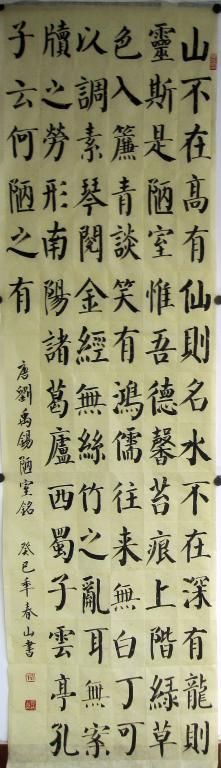 山不在高有仙則名水不在深有龍則
靈斯是陋室惟吾德馨苔痕上階緑草
色入簾青談笑有鴻儒往来無白丁可
以調素琴閱金經無絲竹之亂耳無案
牘之勞形南陽諸葛廬西蜀子雲亭孔
子云何陋之有
唐劉禹錫陋室銘 癸巳年春山書